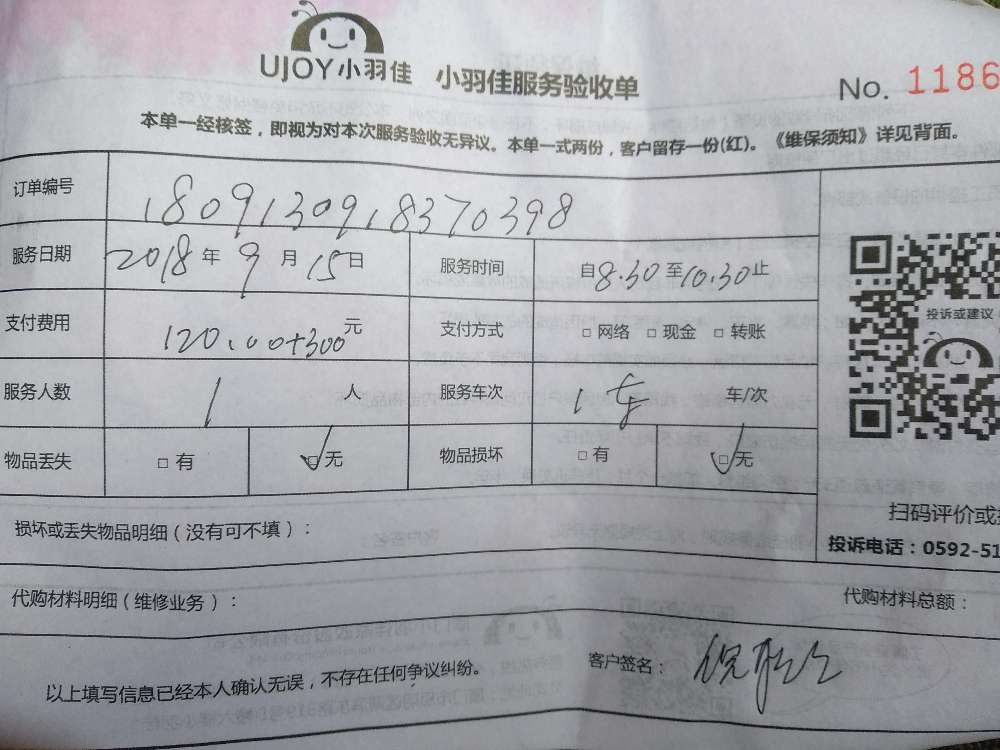 UJOY小羽佳 小羽佳服务验收单 No. 1186
本单一经核签，即视为对本次服务验收无异议。本单一式两份，客户留存一份(红)。《维保须知》详见背面。
订单编号 1809130918370398
服务日期 2018年9月15日 服务时间 自8.30至10.30止
支付费用 120.00+300元 支付方式 □网络 □现金 □转账
投诉或建议
服务人数 1人 服务车次 1车 车/次
物品丢失 □有 □无 物品损坏 □有 □无
扫码评价或
损坏或丢失物品明细（没有可不填）：
投诉电话：0592-51
代购材料明细（维修业务）： 代购材料总额：
以上填写信息已经本人确认无误，不存在任何争议纠纷。 客户签名：